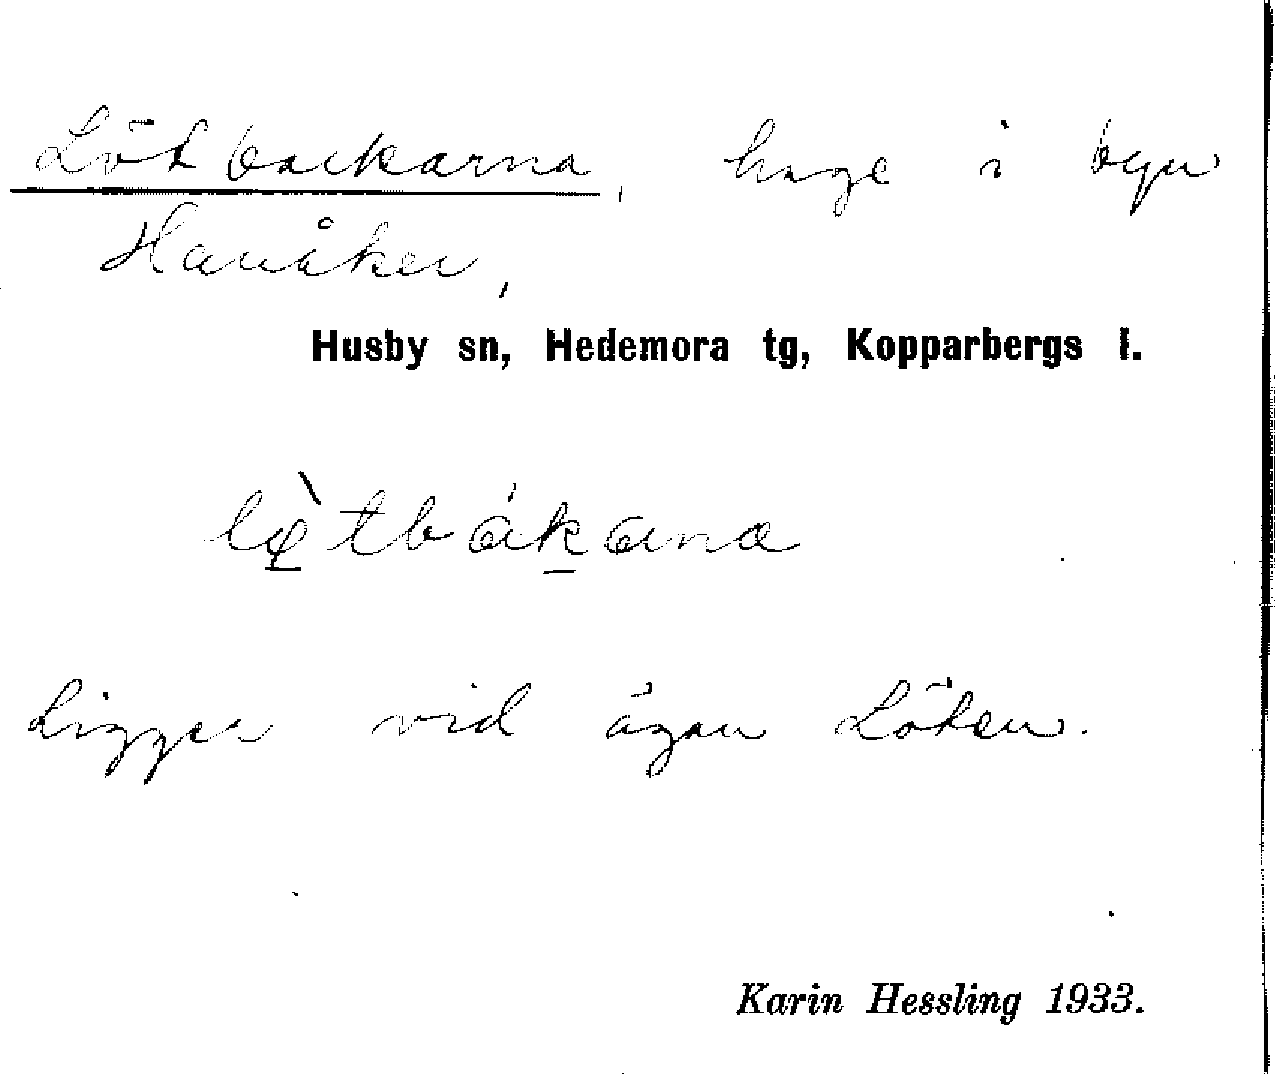 Lötbackarna, hage i byn
Hanåker,
Husby sn, Hedemora tg, Kopparbergs l.
lø̀tbákana
Ligger vid ägan Löten.
Karin Hessling 1933.